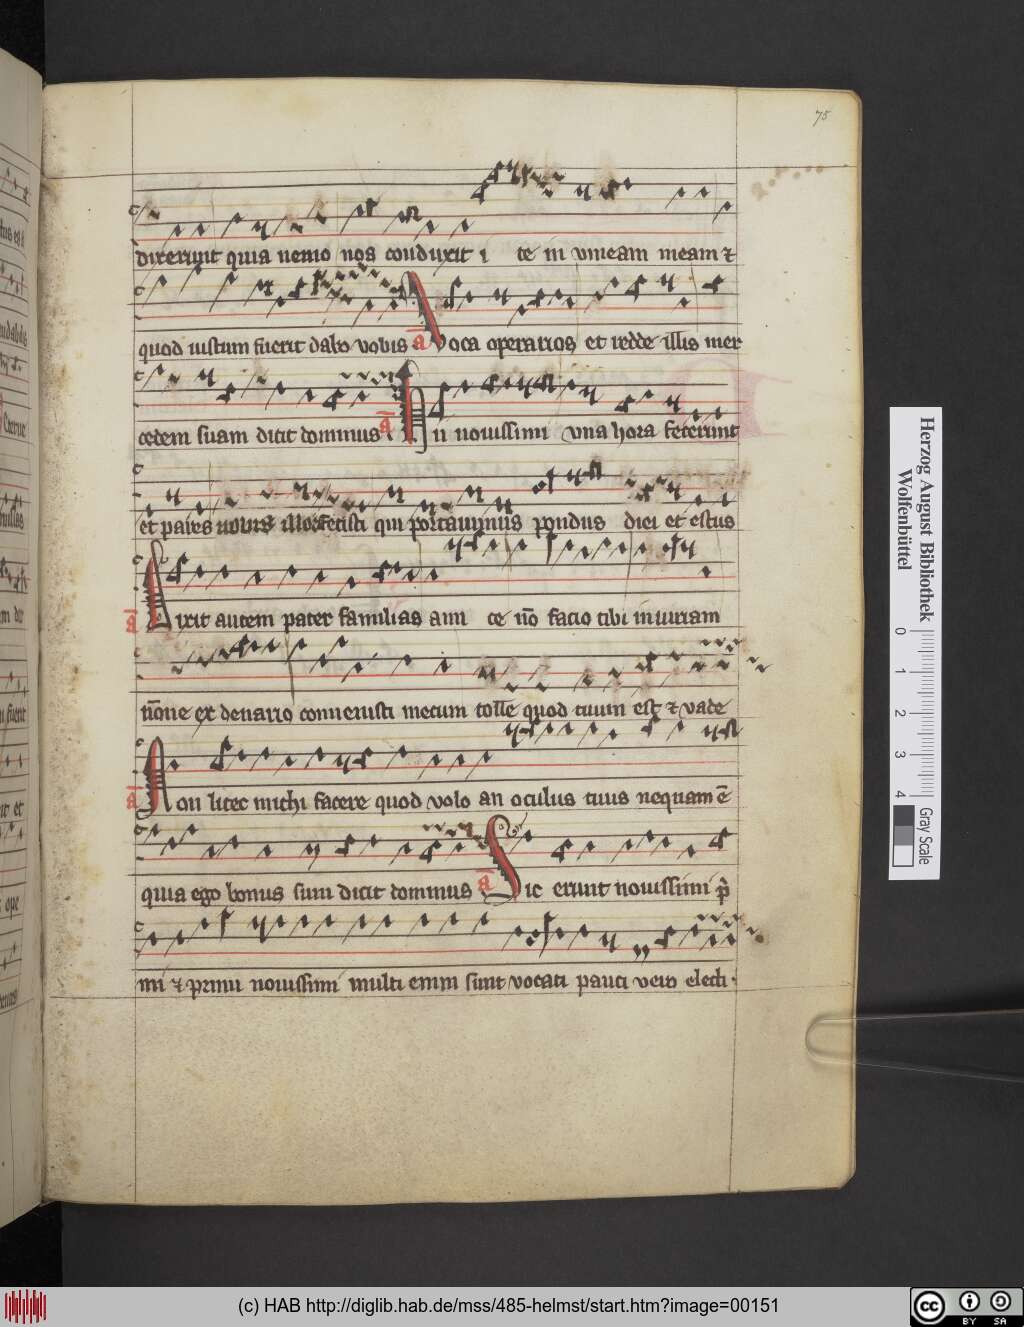 75
dixerunt quia nemo nos conduxit i te in vineam meam ⁊
quod iustum fuerit dabo vobis a Voca operarios et redde illis mer
cedem suam dicit dominus a Hii nouissimi vna hora fecerunt
et pares nobis illos fecisti qui portauimus pondus diei et estus
a Dixit autem pater familias ami ce nō facio tibi iniuriam
nōne ex denario conuenisti mecum tolle quod tuum est ⁊ vade
a Non licet michi facere quod volo an oculus tuus nequam ē
quia ego bonus sum dicit dominus a Sic erunt nouissimi p̄
mi ⁊ primi nouissimi multi enim sunt vocati pauci vero electi.
Herzog August Bibliothek
Wolfenbüttel
0 1 2 3 4
Gray Scale
(c) HAB http://diglib.hab.de/mss/485-helmst/start.htm?image=00151
cc BY SA